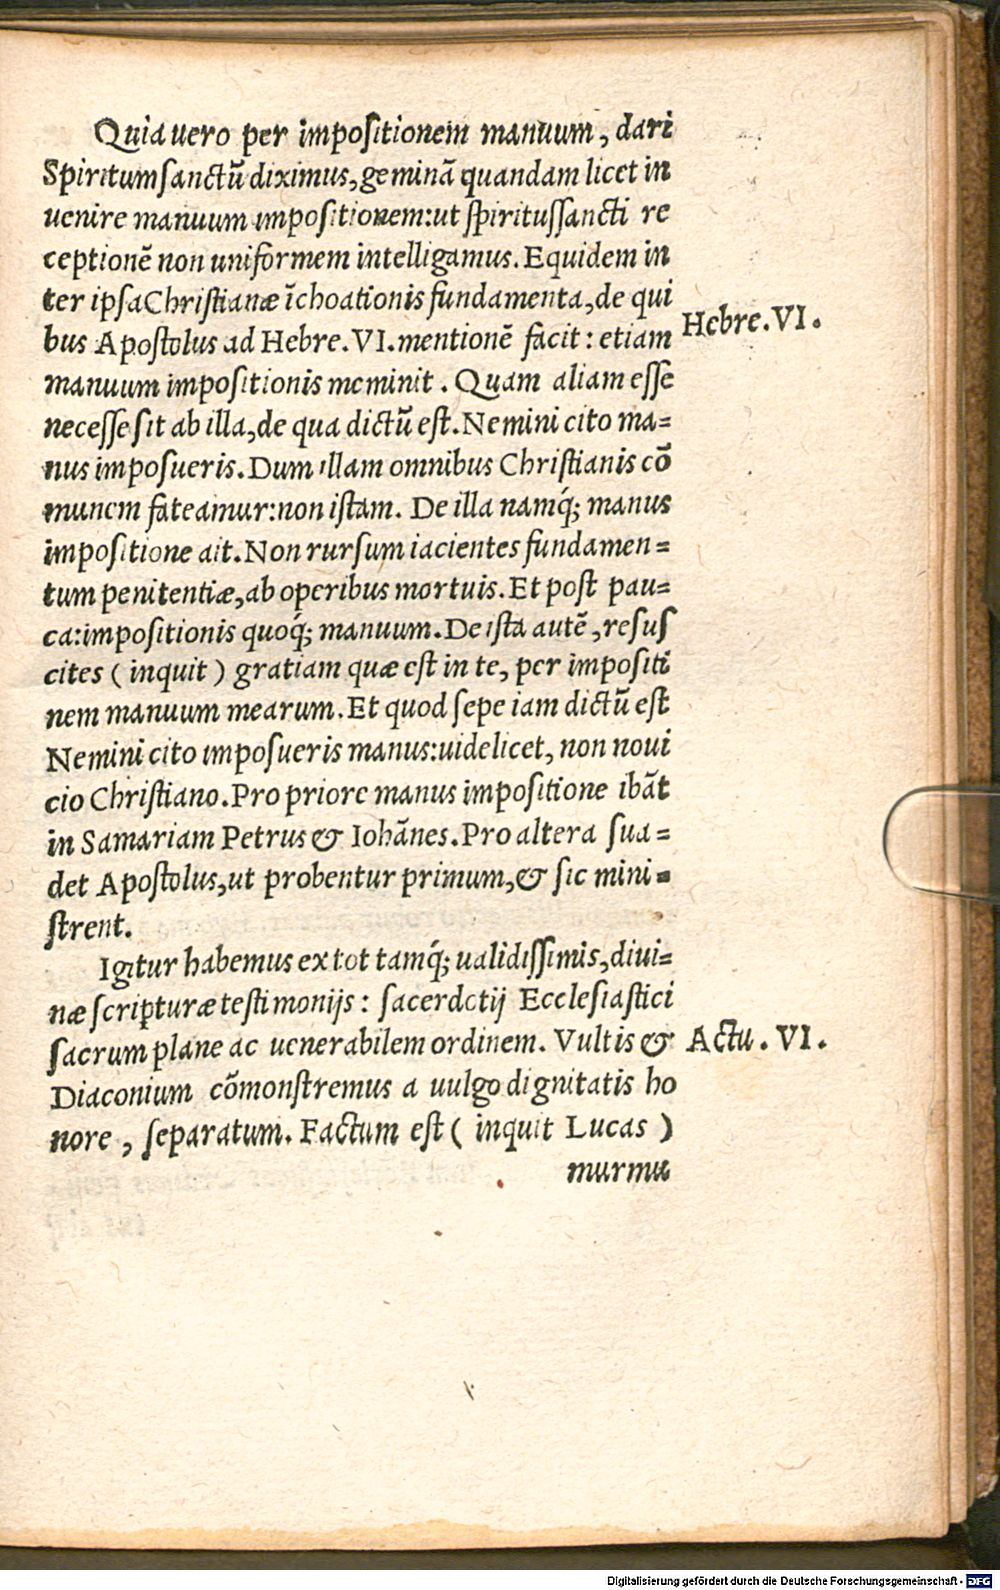 Quia uero per impositionem manuum, dari
Spiritum sanctū diximus, geminā quandam licet in
uenire manuum impositionem: ut spiritussancti re
ceptionē non uniformem intelligamus. Equidem in
ter ipsa Christianæ īchoationis fundamenta, de qui
bus Apostolus ad Hebre. VI. mentionē facit: etiam
Hebre. VI.
manuum impositionis meminit. Quam aliam esse
necesse sit ab illa, de qua dictū est. Nemini cito ma=
nus imposueris. Dum illam omnibus Christianis cō
munem fateamur: non istam. De illa namq́; manus
impositione ait. Non rursum iacientes fundamen=
tum penitentiæ, ab operibus mortuis. Et post pau=
ca: impositionis quoq́; manuum. De ista autē, resus
cites (inquit) gratiam quæ est in te, per impositi
nem manuum mearum. Et quod sepe iam dictū est
Nemini cito imposueris manus: uidelicet, non noui
cio Christiano. Pro priore manus impositione ibāt
in Samariam Petrus & Iohānes. Pro altera sua=
det Apostolus, ut probentur primum, & sic mini=
strent.
Igitur habemus ex tot tamq́; ualidissimis, diui=
næ scripturæ testimonijs: sacerdotij Ecclesiastici
sacrum plane ac uenerabilem ordinem. Vultis &
Actu. VI.
Diaconium cōmonstremus a uulgo dignitatis ho
nore, separatum. Factum est (inquit Lucas)
murmu
Digitalisierung gefördert durch die Deutsche Forschungsgemeinschaft - DFG